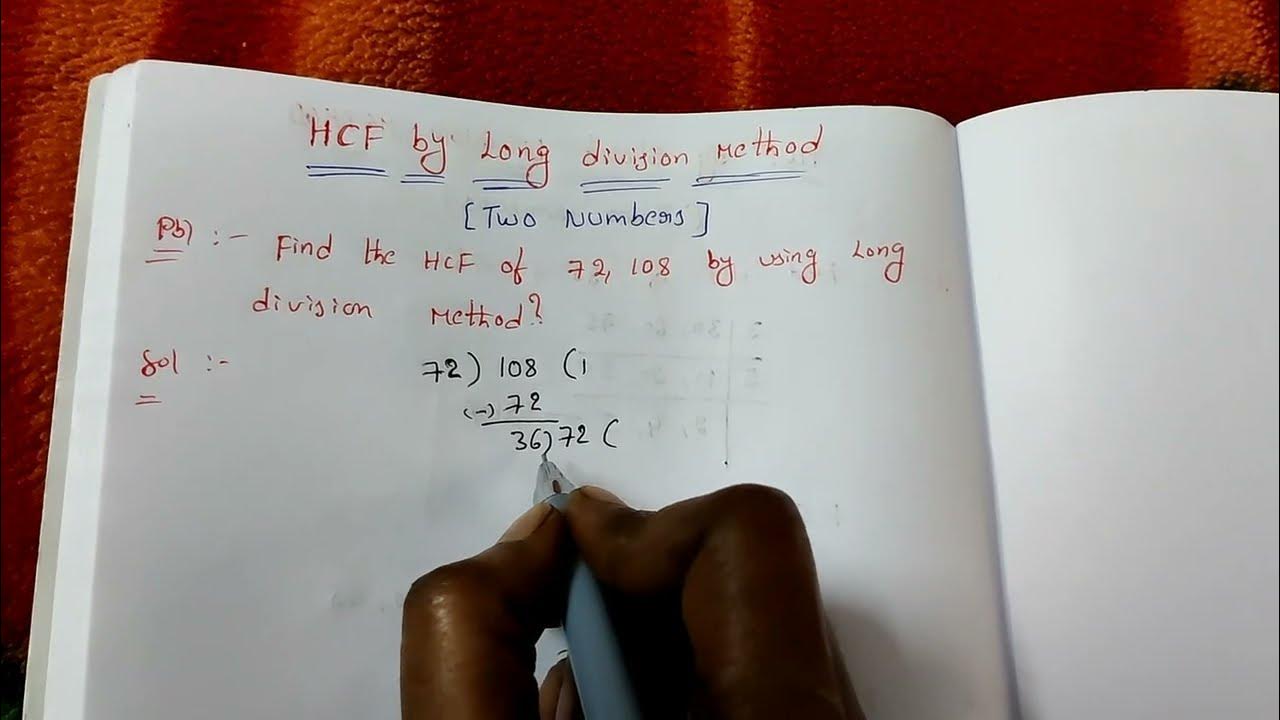 HCF by Long division Method
[Two Numbers]
Pb) :- Find the HCF of 72, 108 by using Long
division Method?
Sol :- 72) 108 (1
(-) 72
36) 72 (